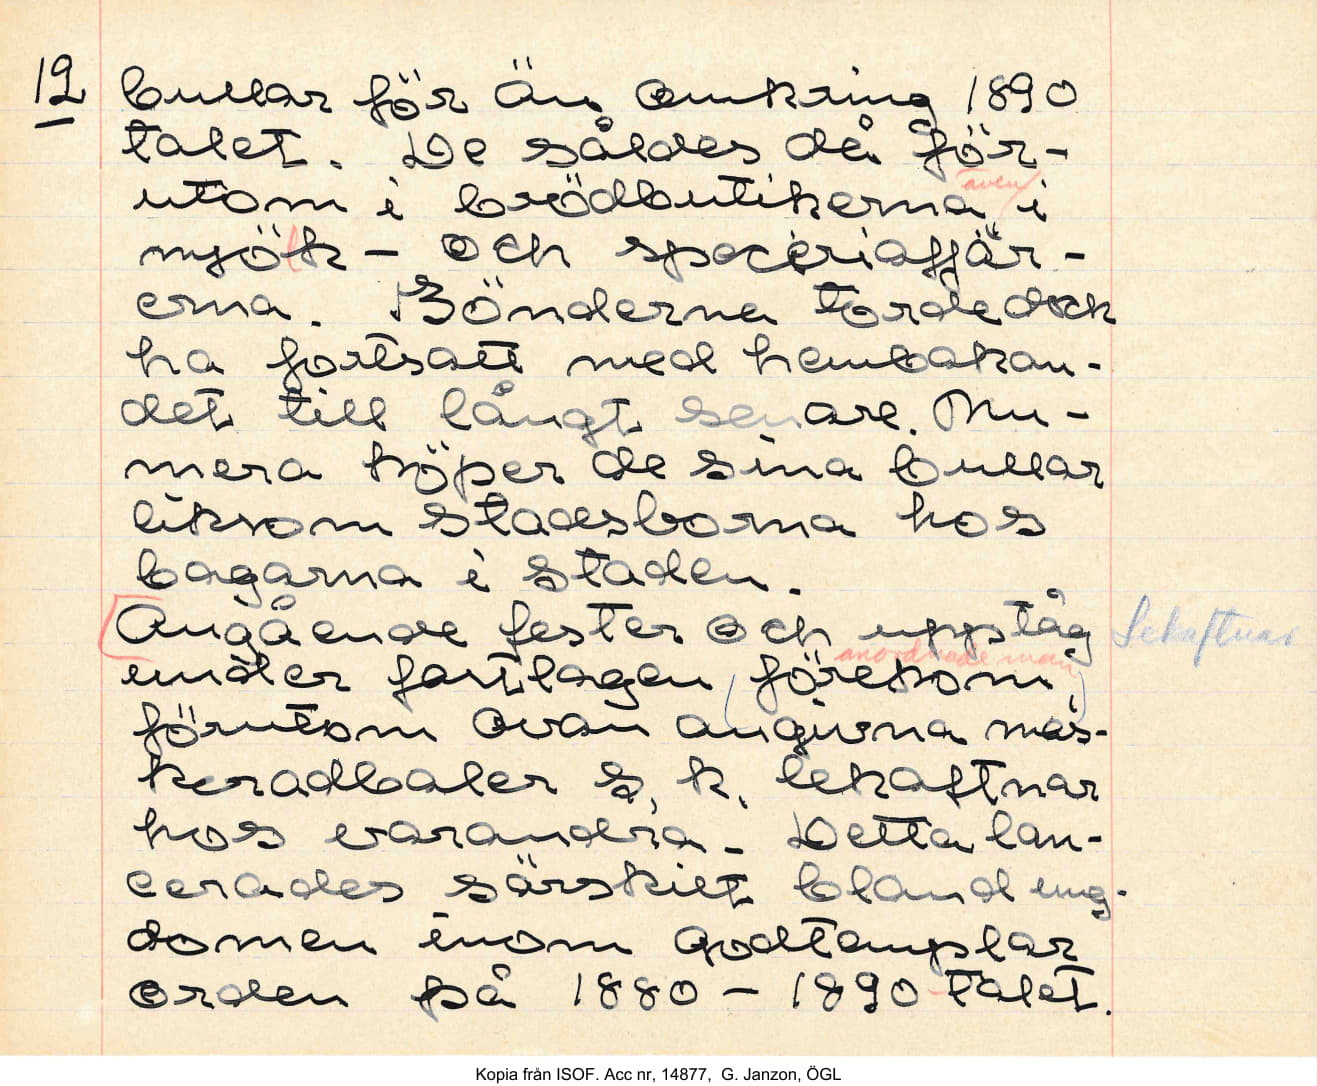 12
bullar för än omkring 1890
talet. De såldes då för-
utom i brödbutikerna även i
mjölk - och speceriaffär-
erna. Bönderna torde dock
ha fortsatt med hembakan-
det till långt senare. Nu-
mera köper de sina bullar
liksom stadsborna hos
bagarna i staden.
Angående fester och upptåg Lekaftnar
anordnade man
under fastlagen (förekom)
förutom ovan angivna mas-
keradbaler s. k. lekaftnar
hos varandra. Detta lan-
cerades särskilt bland ung-
domen inom godtemplar
orden på 1880 - 1890-talet.
Kopia från ISOF. Acc nr, 14877, G. Janzon, ÖGL